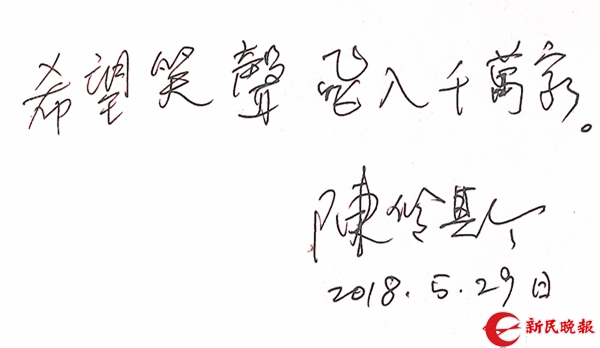 希望笑聲飛入千萬家。
陳佩斯
2018.5.29日
新民晚報